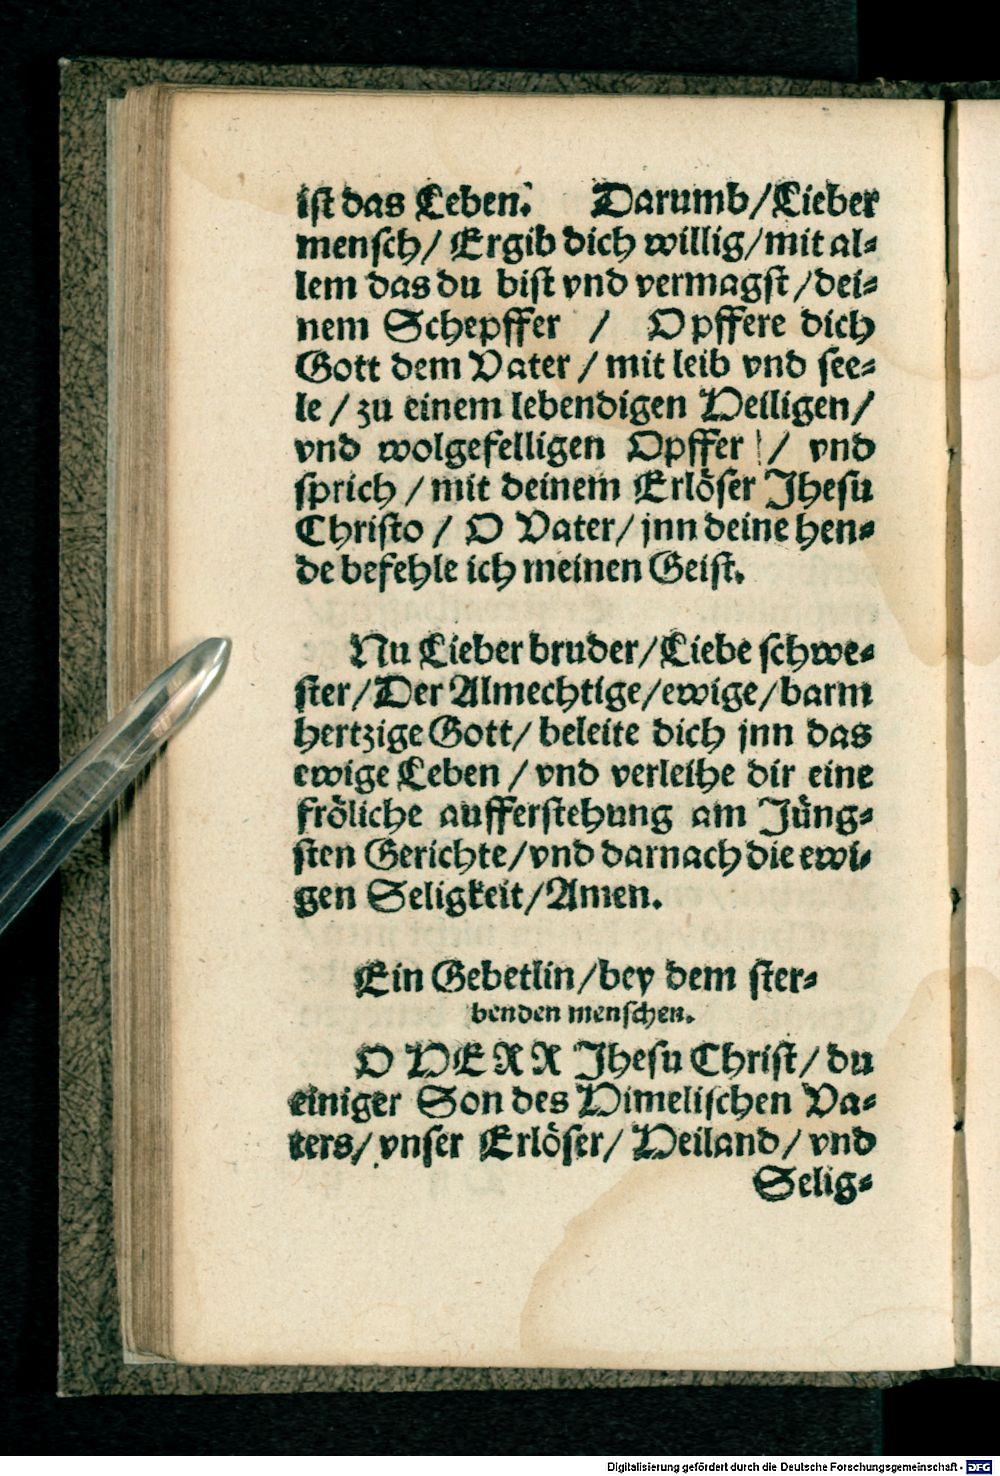 ist das Leben. Darumb/Lieber
mensch/ Ergib dich willig/mit al⸗
lem das du bist vnd vermagst/dei⸗
nem Schepffer / Opffere dich
Gott dem Vater / mit leib vnd see⸗
le / zu einem lebendigen Heiligen/
vnd wolgefelligen Opffer / vnd
sprich / mit deinem Erlöser Jhesu
Christo / O Vater/ jnn deine hen⸗
de befehle ich meinen Geist.
Nu Lieber bruder/Liebe schwe⸗
ster/Der Almechtige/ewige/barm
hertzige Gott/ beleite dich jnn das
ewige Leben / vnd verleihe dir eine
fröliche aufferstehung am Jüng⸗
sten Gerichte/vnd darnach die ewi⸗
gen Seligkeit/Amen.
Ein Gebetlin/bey dem ster⸗
benden menschen.
O HERR Jhesu Christ/ du
einiger Son des Himelischen Va⸗
ters/ vnser Erlöser/ Heiland/ vnd
Selig⸗
Digitalisierung gefördert durch die Deutsche Forschungsgemeinschaft - DFG